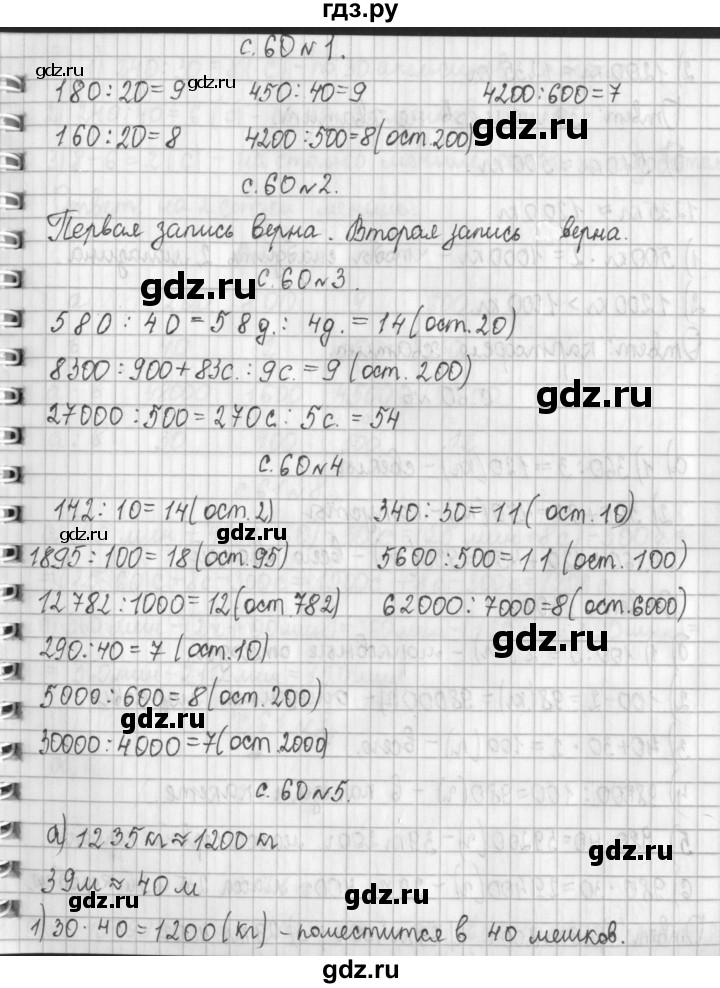 гдз.ру
с.60 №1.
gdz.ru gdz.ru
180:20=9 450:40=9 4200:600=7
gdz.ru
160:20=8 4200:500=8(ост.200)
с.60№2.
Первая запись верна. Вторая запись верна.
gdz.ru с.60№3.
580:40=58д.:4д.=14(ост.20)
8300:900+83с.:9с.=9(ост.200)
gdz.ru
27000:500=270с:5с.=54
с.60№4
142:10=14(ост.2) 340:30=11(ост.10)
gdz.ru gdz.ru
1895:100=18(ост.95) 5600:500=11(ост.100)
12782:1000=12(ост.782) 62000:7000=8(ост.6000)
gdz.ru
290:40=7(ост.10)
5000:600=8(ост.200)
gdz.ru
30000:4000=7(ост.2000)
с.60№5.
а) 1235кг≈1200кг
gdz.ru
39м≈40м
gdz.ru
1) 30·40=1200(кг) - поместится в 40 мешков.
gdz.ru